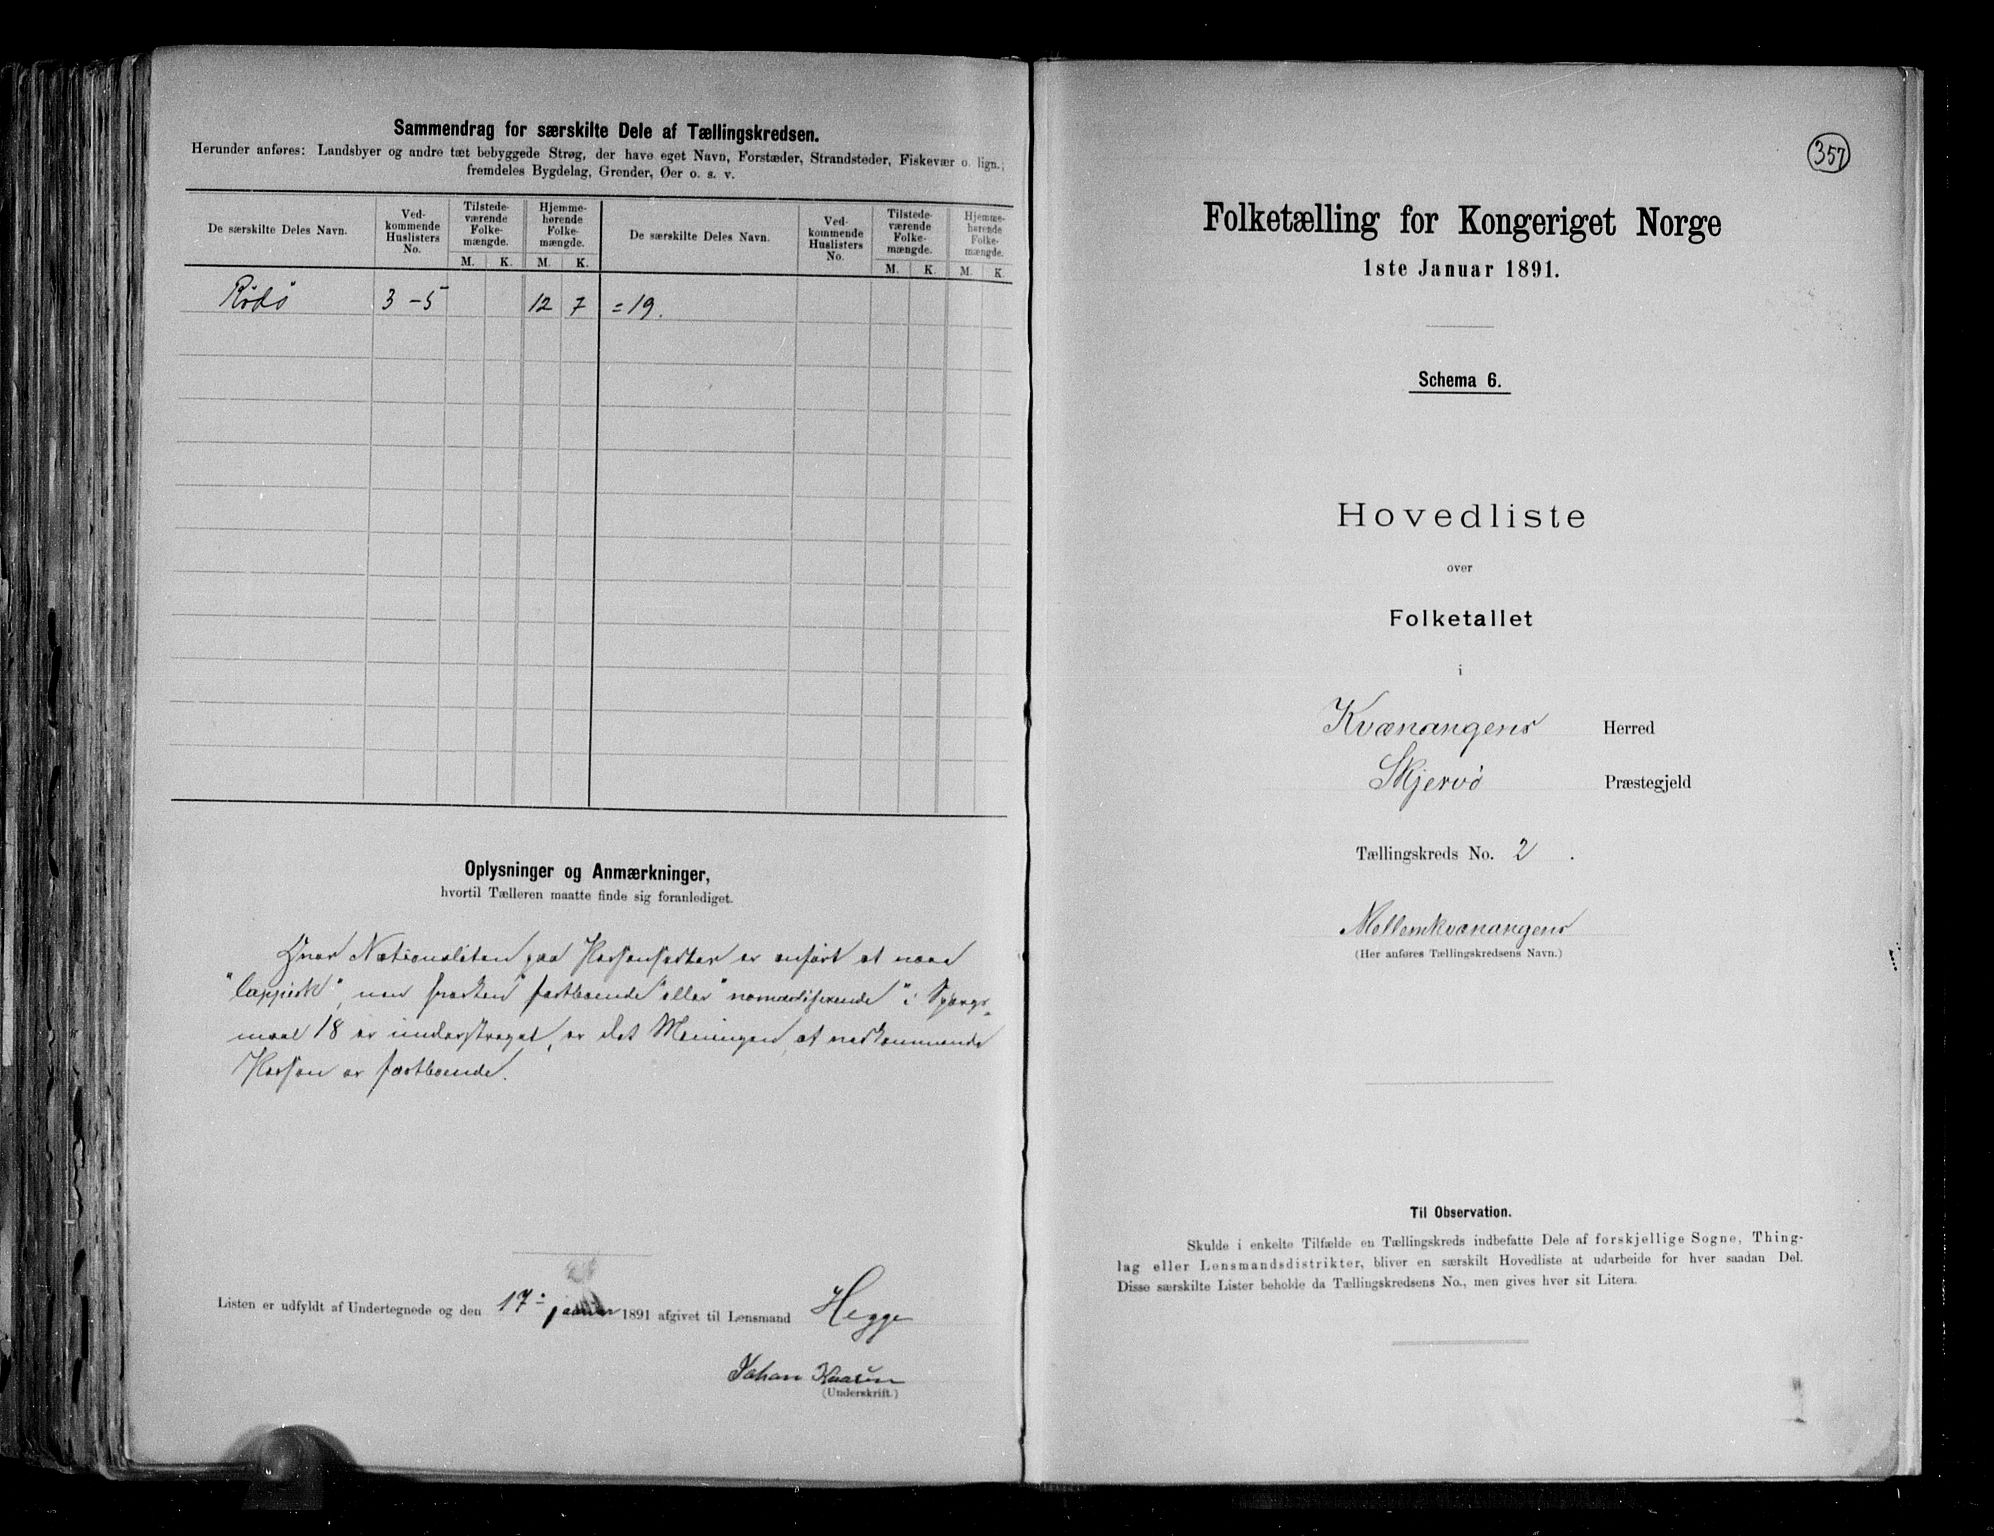 Sammendrag for særskilte Dele af Tællingskredsen.
Herunder anføres: Landsbyer og andre tæt bebyggede Strøg, der have eget Navn, Forstæder, Strandsteder, Fiskevær o. lign.,
fremdeles Bygdelag, Grender, Øer o. s. v.
De særskilte Deles Navn. Ved-kommende Huslisters No. Tilstede-værende Folke-mængde. Hjemme-hørende Folke-mængde. De særskilte Deles Navn. Ved-kommende Huslisters No. Tilstede-værende Folke-mængde. Hjemme-hørende Folke-mængde.
M. K. M. K. M. K. M. K.
Rödö 3 – 5 12 7 = 19.
Oplysninger og Anmærkninger,
hvortil Tælleren maatte finde sig foranlediget.
Hvor Nationaliteten paa Personsedler er anført at være
"lappisk", men hverken "fastboende" eller "nomadiserende" i Spørgs-
maal 18 er understreget, er det Meningen, at vedkommende
Person er fastboende.
Listen er udfyldt af Undertegnede og den 17 januar 1891 afgivet til Lensmand Hegge
Johan
(Underskrift.)
357
Folketælling for Kongeriget Norge
1ste Januar 1891.
Schema 6.
Hovedliste
over
Folketallet
i
Kvænangens Herred
Skjervö Præstegjeld
Tællingskreds No. 2.
Mellemkvænangens
(Her anføres Tællingskredsens Navn.)
Til Observation.
Skulde i enkelte Tilfælde en Tællingskreds indbefatte Dele af forskjellige Sogne, Thing-
lag eller Lensmandsdistrikter, bliver en særskilt Hovedliste at udarbeide for hver saadan Del.
Disse særskilte Lister beholde da Tællingskredsens No., men gives hver sit Litera.